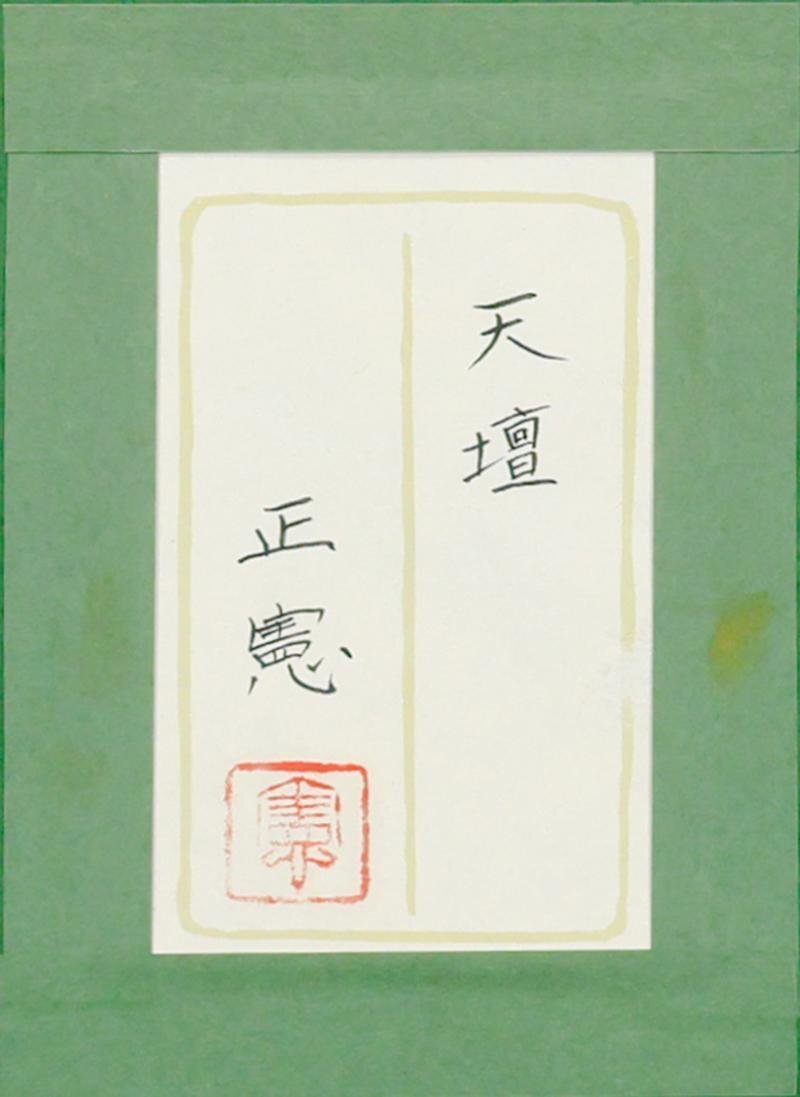 天壇
正憲